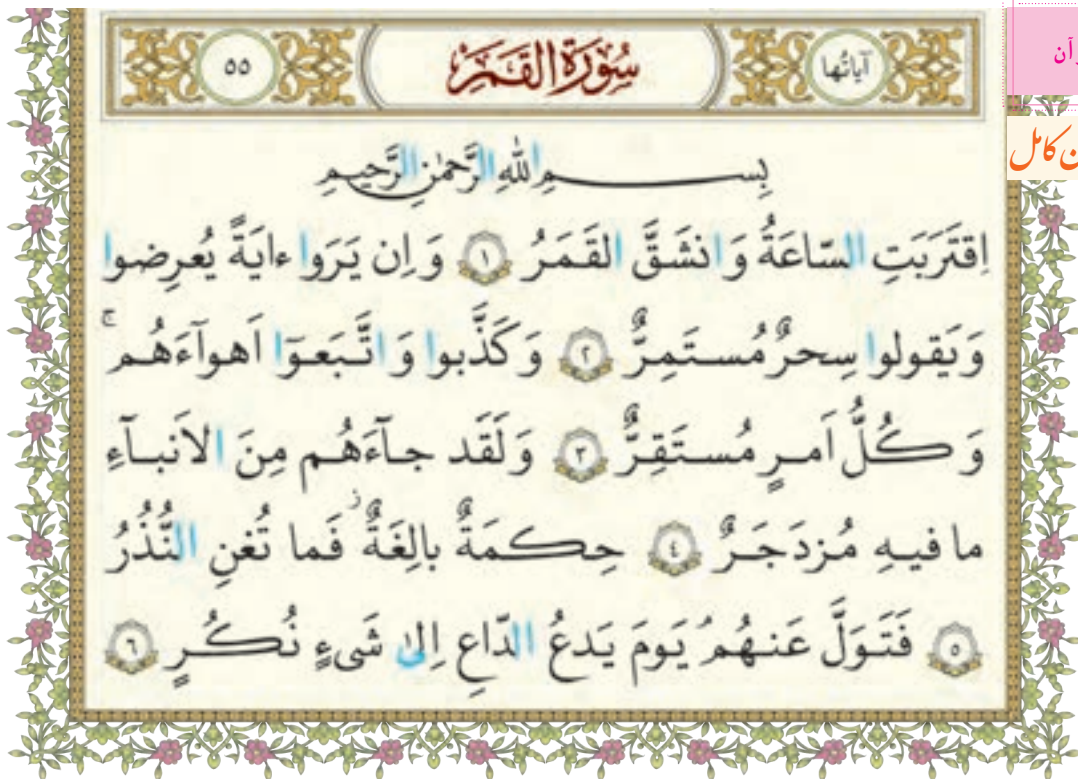 آیاتُها
سُورَةُ القَمَر
٥٥
بِسمِ اللهِ الرَّحمٰنِ الرَّحیمِ
اِقتَرَبَتِ السّاعَةُ وَ انشَقَّ القَمَرُ ١ وَ اِن یَرَوا ءایَةً یُعرِضوا
وَ یَقولوا سِحرٌ مُستَمِرٌّ ٢ وَ کَذَّبوا وَ اتَّبَعوٓا اَهوآءَهُم ۚ
وَ کُلُّ اَمرٍ مُستَقِرٌّ ٣ وَ لَقَد جآءَهُم مِنَ الاَنبآءِ
ما فیهِ مُزدَجَرٌ ٤ حِکمَةٌ بالِغَةٌ ز فَما تُغنِ النُّذُرُ
٥ فَتَوَلَّ عَنهُم ُ یَومَ یَدعُ الدّاعِ اِلیٰ شَیءٍ نُکُرٍ ٦